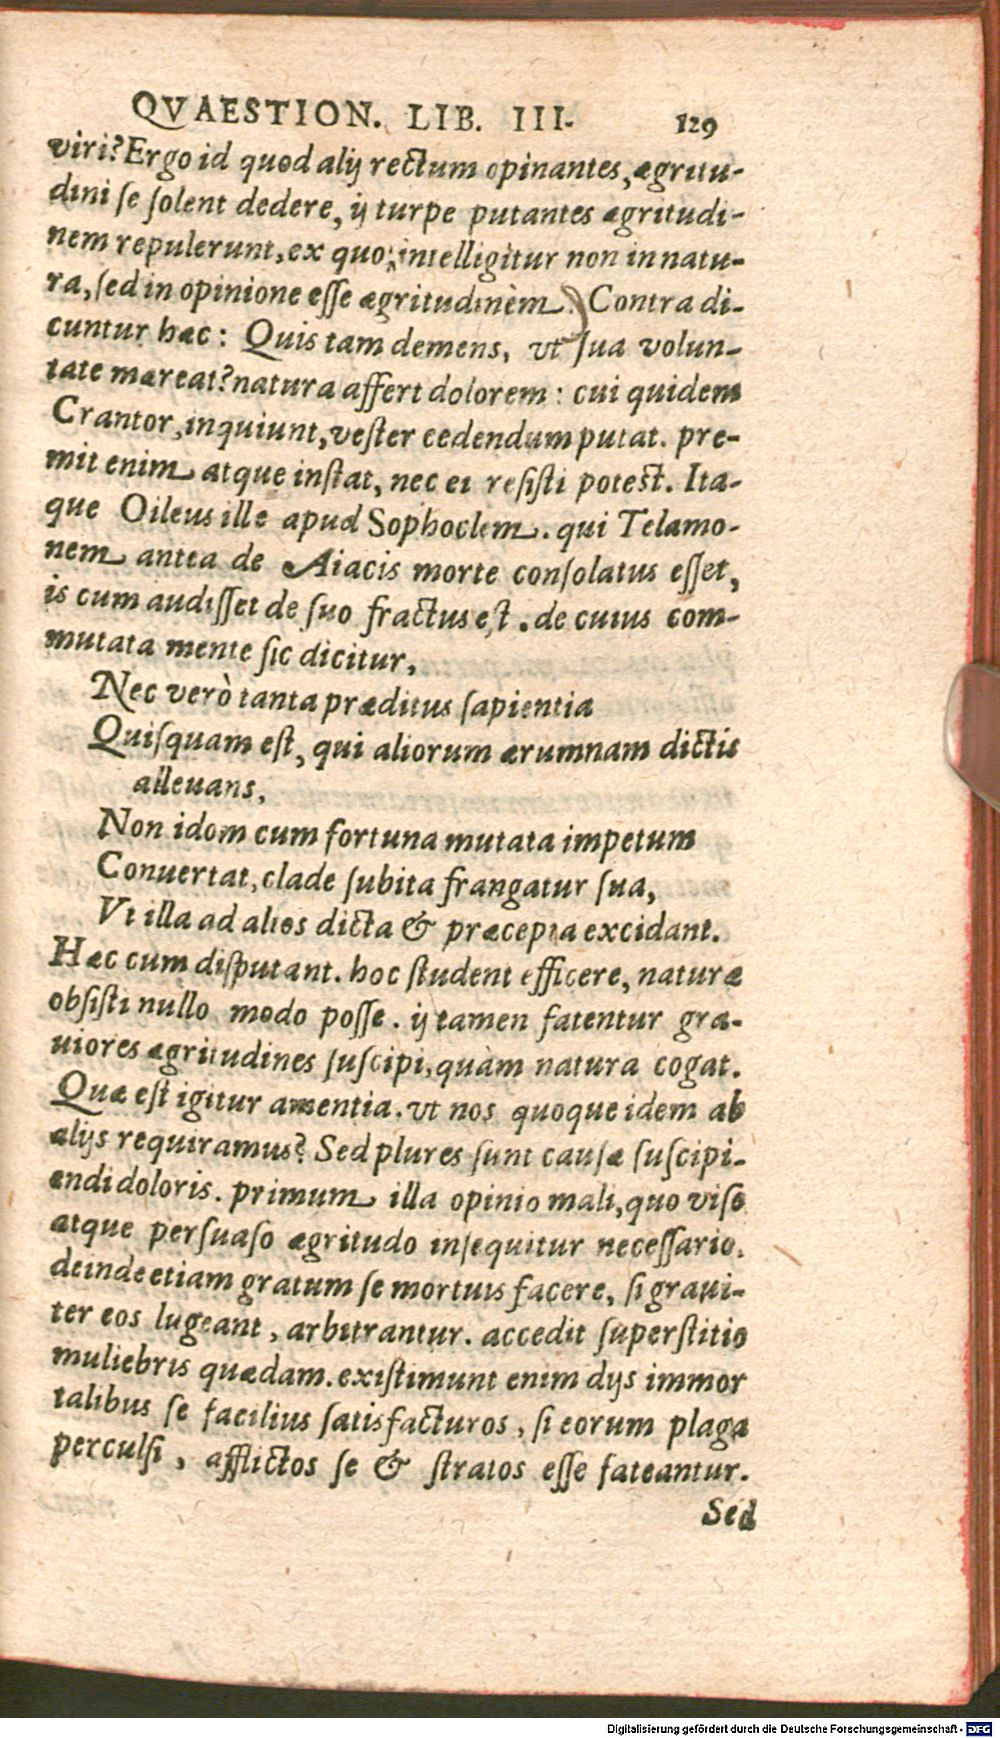 QVAESTION. LIB. III. 129
viri? Ergo id quod alij rectum opinantes, ægritu-
dini se solent dedere, ij turpe putantes ægritudi-
nem repulerunt, ex quo; intelligitur non in natu-
ra, sed in opinione esse ægritudinèm. Contra di-
cuntur hæc: Quis tam demens, vt sua volun-
tate mæreat? natura affert dolorem: cui quidem
Crantor, inquiunt, vester cedendum putat. pre-
mit enim atque instat, nec ei resisti potest. Ita-
que Oileus ille apud Sophoclem. qui Telamo-
nem antea de Aiacis morte consolatus esset,
is cum audisset de suo fractus est. de cuius com-
mutata mente sic dicitur,
Nec verò tanta præditus sapientia
Quisquam est, qui aliorum ærumnam dictis
alleuans,
Non idom cum fortuna mutata impetum
Conuertat, clade subita frangatur sua,
Vt illa ad alios dicta & præcepta excidant.
Hæc cum disputant. hoc student efficere, naturæ
obsisti nullo modo posse. ij tamen fatentur gra-
uiores ægritudines suscipi, quàm natura cogat.
Quæ est igitur amentia. vt nos quoque idem ab
alijs requiramus? Sed plures sunt causæ suscipi-
endi doloris. primum illa opinio mali, quo viso
atque persuaso ægritudo insequitur necessario.
deinde etiam gratum se mortuis facere, si graui-
ter eos lugeant, arbitrantur. accedit superstitio
muliebris quædam. existimunt enim dijs immor
talibus se facilius satisfacturos, si eorum plaga
perculsi, afflictos se & stratos esse fateantur.
Sed
Digitalisierung gefördert durch die Deutsche Forschungsgemeinschaft - DFG